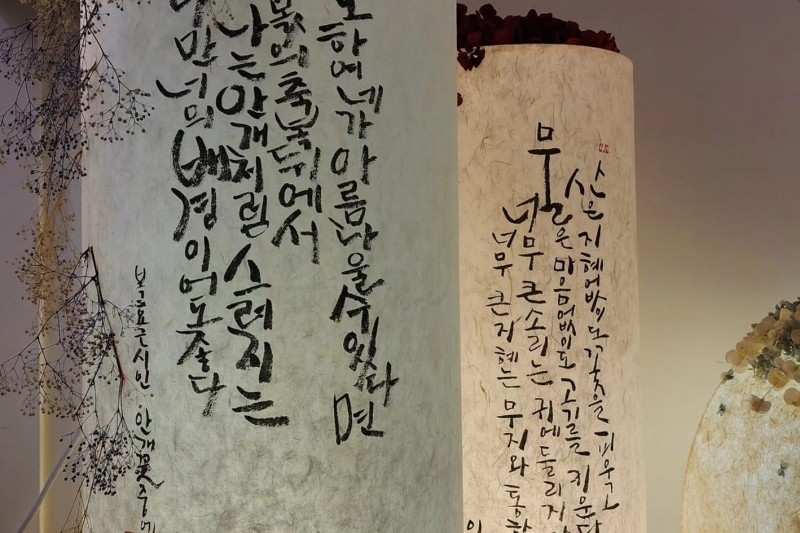 로 하여 네가 아름다울 수 있다면
몫의 축복 뒤에서
나는 안개처럼 스러지는
다만 너의 배경이어도 좋다
복효근시인 안개꽃중에
산은 지혜없이도 꽃을 피우고
물은 마음없이도 고기를 키운다
너무 큰소리는 귀에 들리지
너무 큰 지혜는 무지와 통하